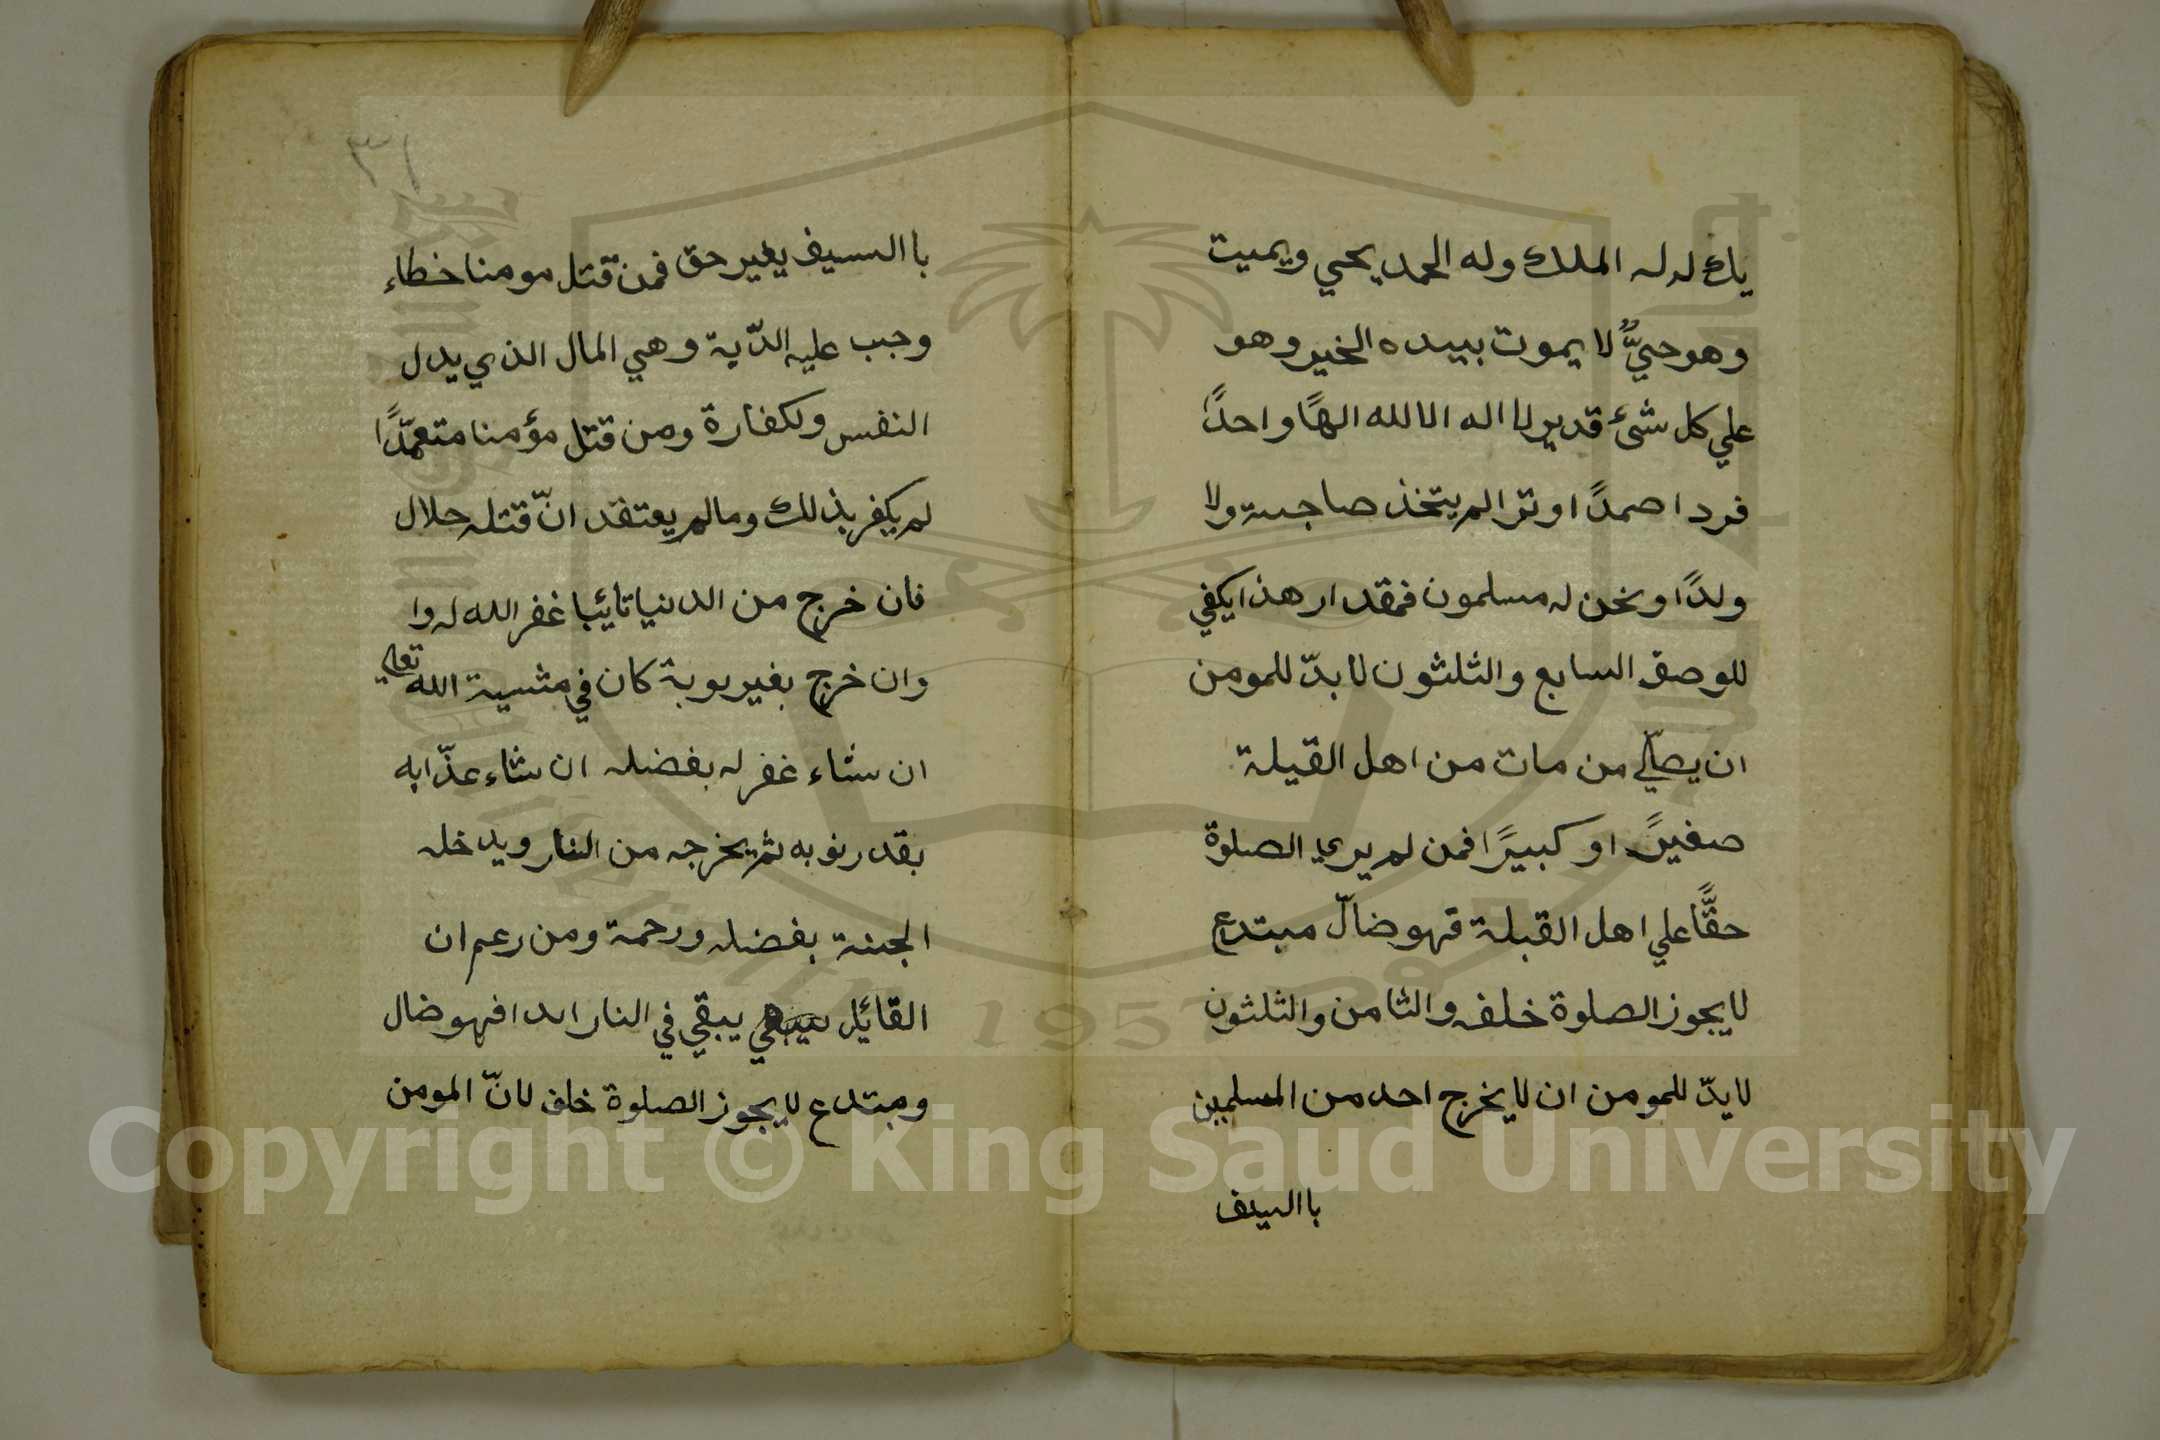 يك له له الملك وله الحمد يحيي ويميت
وهو حيٌّ لا يموت بيده الخير وهو
علي كل شئ قدير لا اله الا لله الهًا واحدًا
فردا صمدًا وترا لم يتخذ صاحبة ولا
ولدًا ونحن له مسلمون فمقدار هذا يكفي
للوصف السابع والثلثون لا بدّ للمومن
ان يصلّي من مات من اهل القبلة
صغيرً او كبيرًا فمن لم يري الصلوة
حقًّا علي اهل القبلة فهو ضالّ مبتدع
لا يجوز الصلوة خلفه والثامن والثلثون
لا بدّ للمومن ان لا يخرج احد من المسلمين
باالسيف
٣١
باالسيف بغير حق فمن قتل مومنا خطاء
وجب عليه الدّية وهي المال الذي يدل
النفس ولكفارة ومن قتل مؤمنا متعمّدًا
لم يكفر بذلك ومالم يعتقد انّ قتله حلال
فان خرج من الدنيا تائبا غفر الله له وا
وان خرج بغير توبة كان في مشية الله تعلي
ان شاء غفر له بفضله ان شاء عذّابه
بقدر نوبه ثم يخرجه من النار ويدخله
الجنة بفضله ورحمة ومن زعم ان
القائل يبقي في النار ابدا فهو ضال
ومبتدع لا يجوز الصلوة خلف لانّ المومن
1957
Copyright © King Saud University